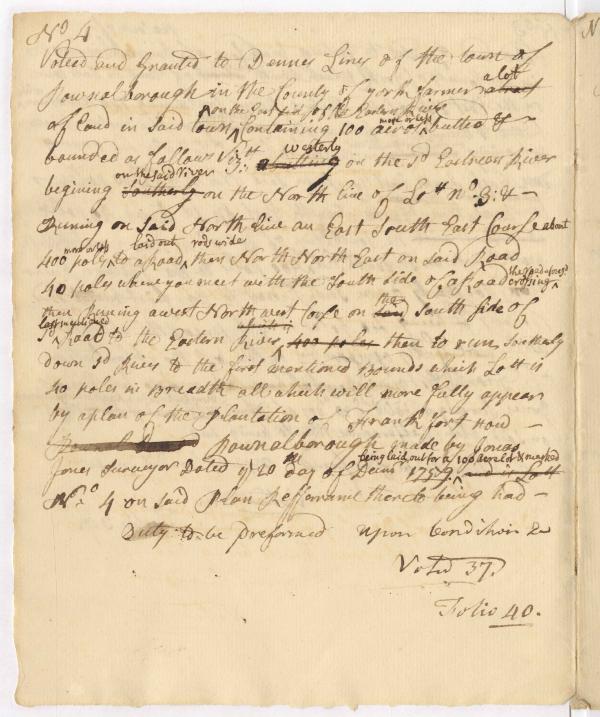 No 4
Voted and Granted to Dennes Lines of the town of
a lot
Pownalborough in the County of york farmer a tract
on the East side of the Eastern River
more or less
of Land in said town Containing 100 acres butted &
bounded as follows Vizt
westerly
a butting on the sd Eastern River
on the said River
begining Southerly on the North line of Lott No. 3: &
Runing on said North line an East South East Course about
more or less laid out rods wide
400 poles to a Road then North North East on said Road
40 poles where you meet with the South Side of a Road crossing
the said first
then Runing a west North west Corse on the said South side of
last mentioned
sd Road to the Eastern River 400 poles then to run Southerly
Down sd River to the first mentioned bounds which Lott is
40 poles in Breadth all which will more fully appear
by a plan of the Plantation of Frankfort now
Pownalborough made by Jonas
being laid out for a 100 acre lot & marked
Jones Surveyor Dated ye 20th day of Decmr 1759. and is Lott
No. 4 on said Plan Refferance thereto being had
Duty to be preformed upon Condition &c
Voted 37.
Folio 40.